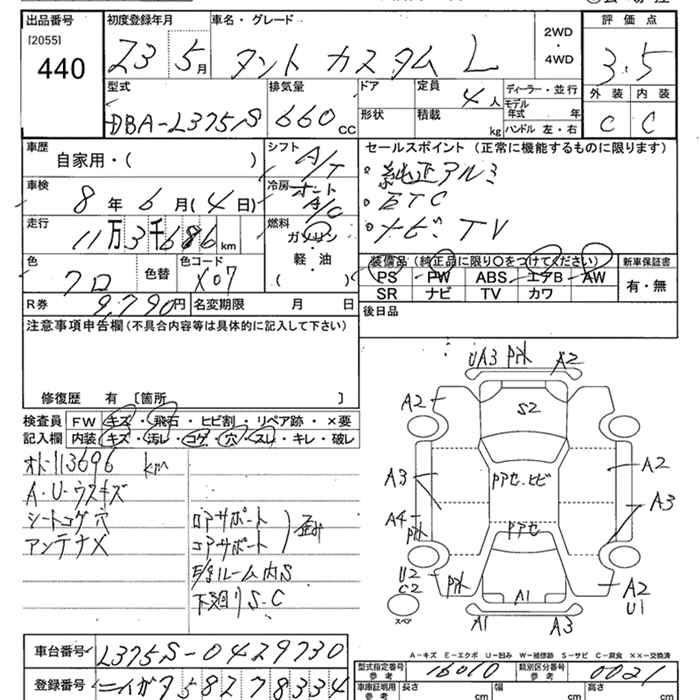 出品番号 初度登録年月 車名・グレード 2WD・4WD 評価点
[2055]
440 23 5月 タント カスタム L 3.5
型式 排気量 ドア 定員 4人 ディーラー・並行 外装 内装
DBA-L375S 660cc 形状 積載 kg モデル年式 年 C C
ハンドル 左・右
車歴 自家用・( ) シフト A/T セールスポイント (正常に機能するものに限ります)
車検 8年 6月(4日) 冷房 オート A/C ・純正アルミ
・ETC
走行 11万3千686km 燃料 ガソリン ・ナビ TV
軽・油
( )
色 クロ 色替 色コード X07 装備品 (純正品に限り○をつけてください) 新車保証書
PS PW ABS エアB AW 有・無
SR ナビ TV カワ
R券 9,790円 名変期限 月 日 後日品
注意事項申告欄 (不具合内容等は具体的に記入して下さい)
修復歴 有 [箇所 ]
検査員 FW キズ・飛石・ヒビ割・リペア跡・×要
記入欄 内装 キズ・汚レ・コゲ・穴・スレ・キレ・破レ
オド113696km
A・U・ウスキズ
シートコゲ穴 ロアサポート
アンテナX コアサポート 歪み
ルーム内S
下廻りS・C
UA3 A2
A2
S2
A3 PアセヒビA2
A3
A4
Pアセ
U2
C2 A2
U1
A1
スペア A1 A3
A-キズ E-エクボ U-凹み W-補修跡 S-サビ C-腐食 XX-交換済
車台番号 L375S-0429730 型式指定番号 参考 16010 類別区分番号 参考 0021
登録番号 ニイガタ 582 ク 8334 車庫証明用 参考 長さ cm 幅 cm 高さ cm